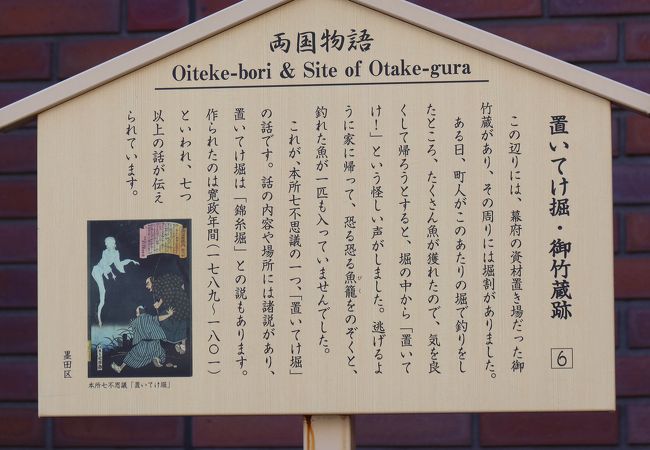 両国物語
Oiteke-bori & Site of Otake-gura
置いてけ堀・御竹蔵跡
6
この辺りには、幕府の資材置き場だった御
竹蔵があり、その周りには堀割がありました。
ある日、町人がこのあたりの堀で釣りをし
たところ、たくさん魚が獲れたので、気を良
くして帰ろうとすると、堀の中から「置いて
け!」という怪しい声がしました。逃げるよ
うに家に帰って、恐る恐る魚籠をのぞくと、
びく
釣れた魚が一匹も入っていませんでした。
これが、本所七不思議の一つ、「置いてけ堀」
の話です。話の内容や場所には諸説があり、
置いてけ堀は「錦糸堀」との説もあります。
作られたのは寛政年間(一七八九~一八〇一)
といわれ、七つ
以上の話が伝え
られています。
本所七不思議「置いてけ堀」
墨田区